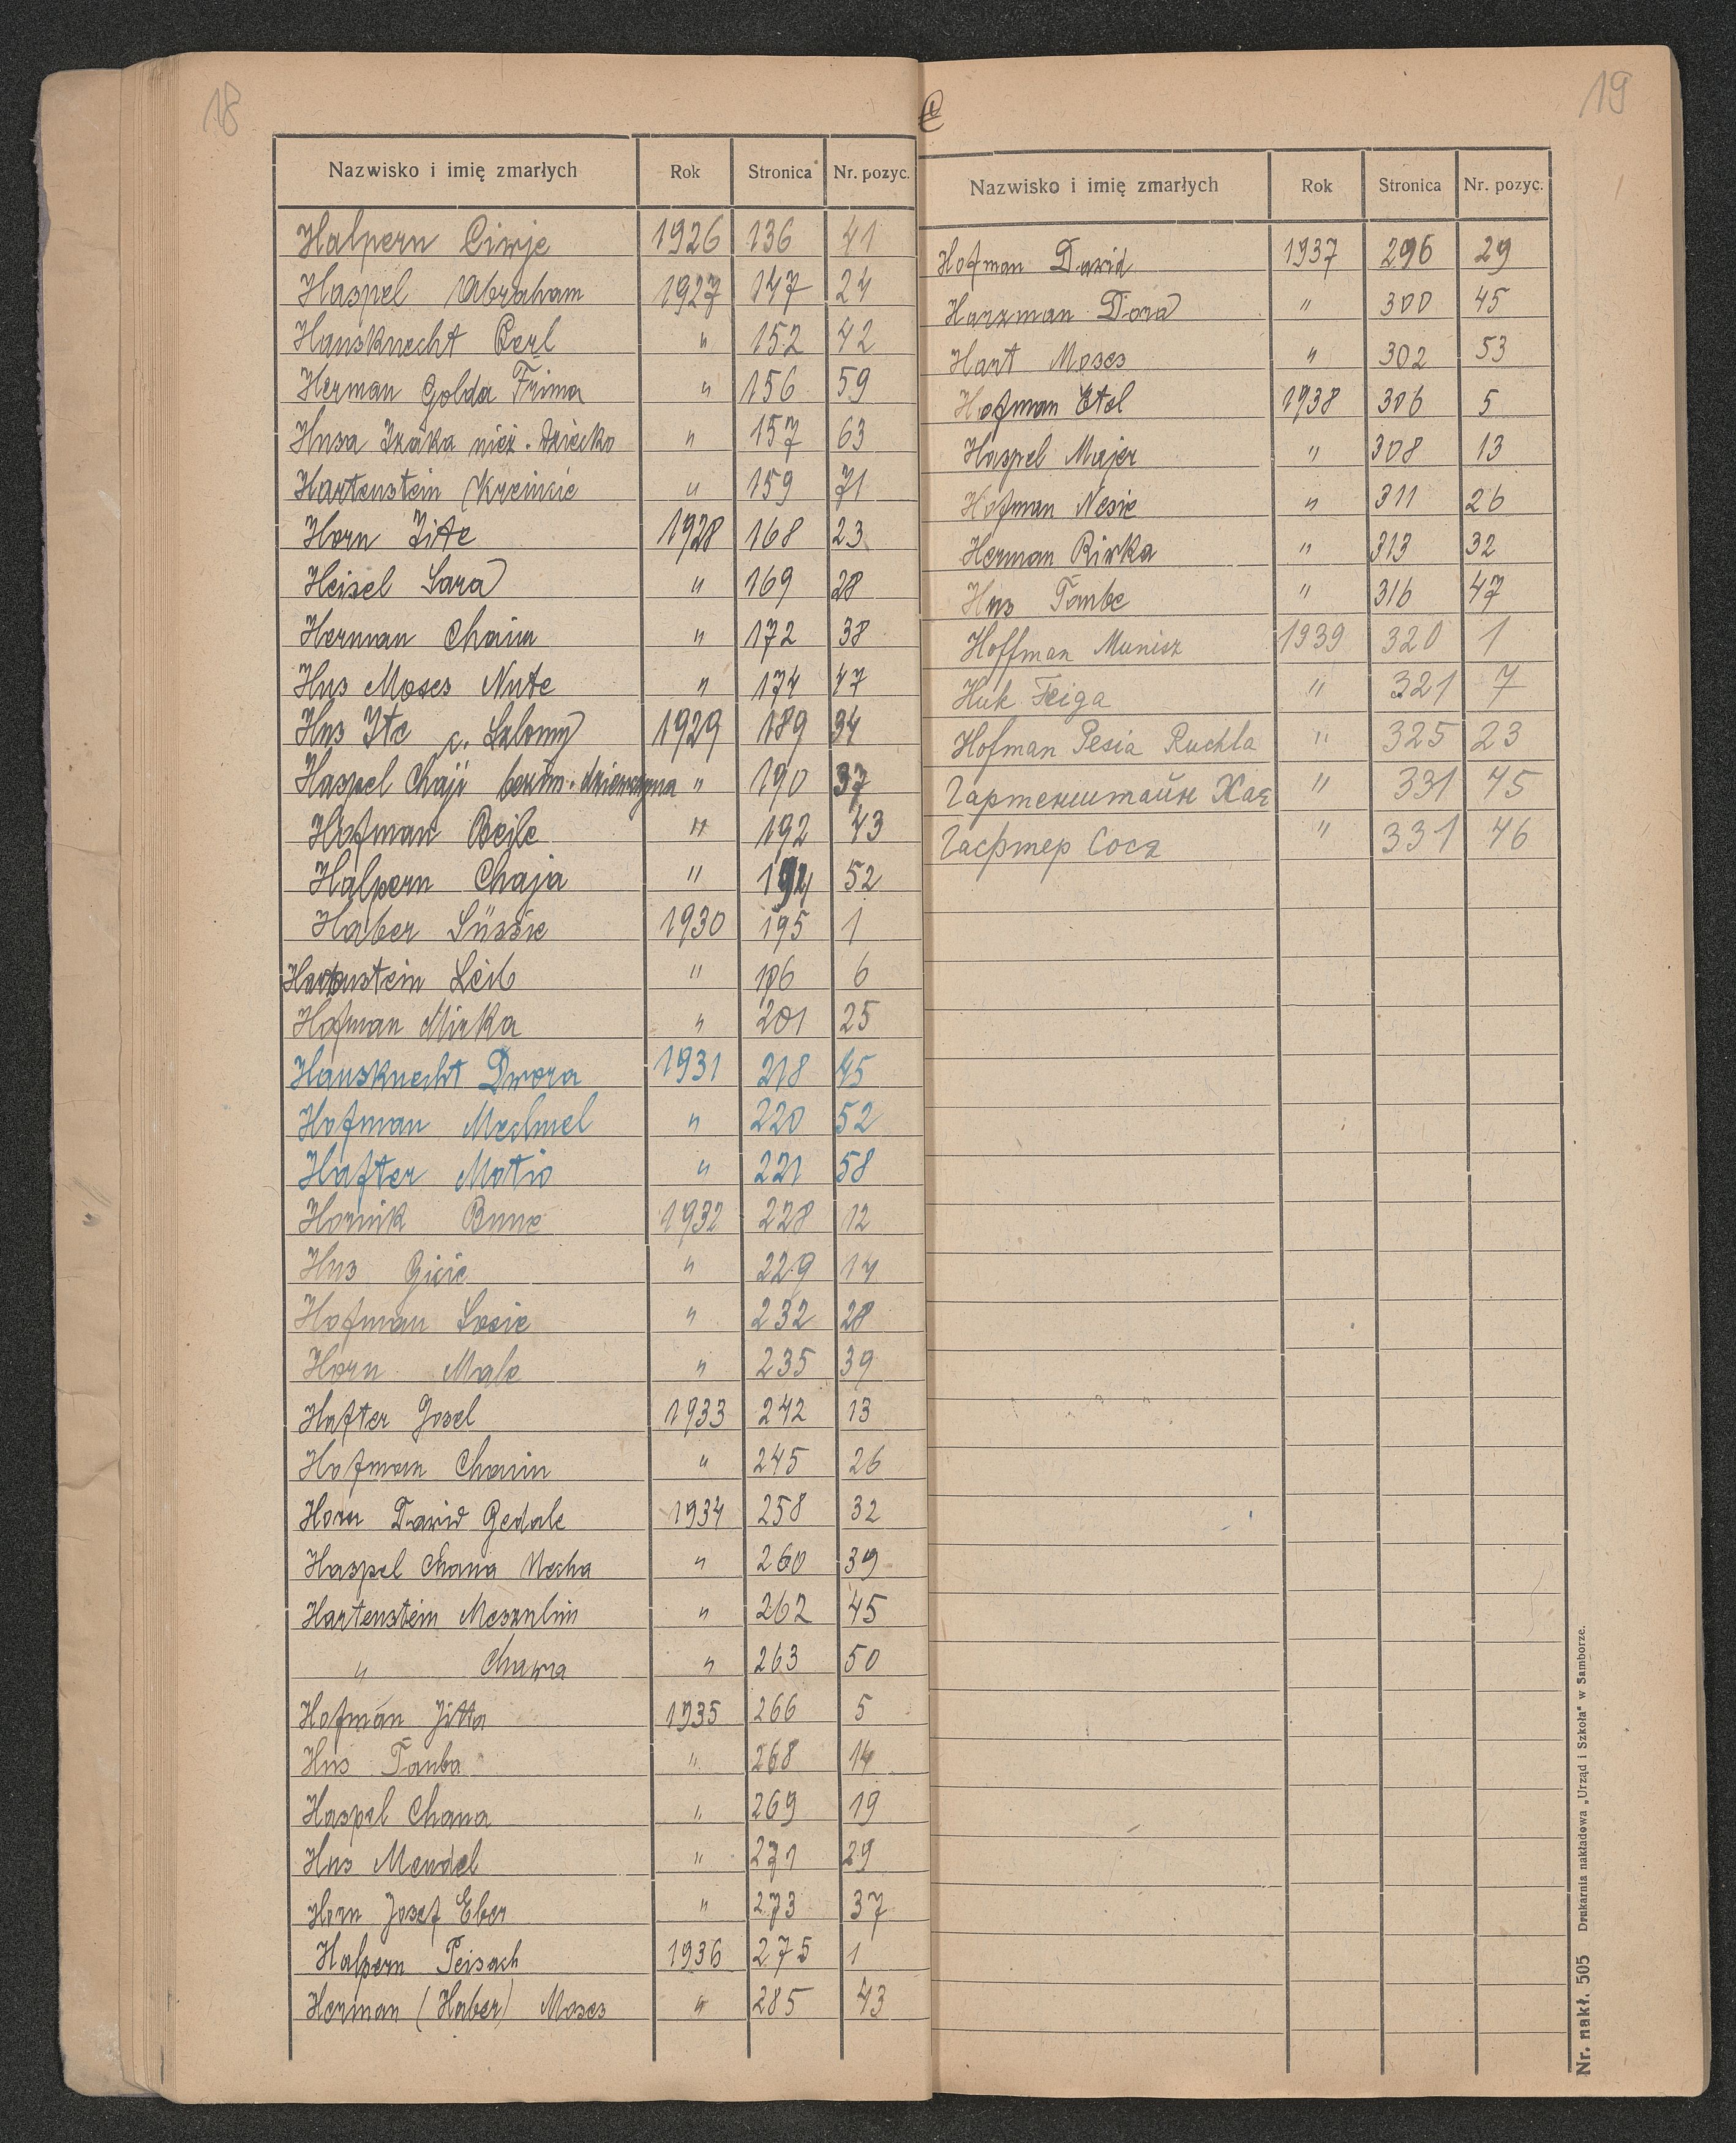 18
Nazwisko i imię zmarłych Rok Stronica Nr. pozyc.
Halpern Cirije 1926 136 41
Haspel Abraham 1927 147 24
Hausknecht Perl " 152 42
Herman Golda Frima " 156 59
Husa Izaka nież. dziecko " 157 63
Hartenstein " 159 71
Horn Jitte 1928 168 23
Heisel Sara " 169 28
Herman Chaim " 172 38
Hus Moses Nute " 174 47
Hus Ite c. Salomy 1929 189 34
Haspel Chaji bezim. dziewczyna " 190 37
Hofman Beile " 192 43
Halpern Chaja " 194 52
Haber Süssie 1930 195 1
Hartenstein Leib " 196 6
Hofman Mirka " 201 25
Hausknecht Dwora 1931 218 45
Hofman Mechmel " 220 52
Hafter Motio " 221 58
Hornik Bune 1932 228 12
Hus Gisie " 229 14
Hofman Sosie " 232 28
Horn Male " 235 39
Hafter Josel 1933 242 13
Hofman Chaim " 245 26
Horn Dawid Gedale 1934 258 32
Haspel Chana Necha " 260 39
Hartenstein Meszulim " 262 45
" Chawa " 263 50
Hofman Jitta 1935 266 5
Hus Tauba " 268 14
Haspel Chana " 269 19
Hus Mendel " 271 29
Horn Josef Eber " 273 37
Halpern Peisach 1936 275 1
Herman (Haber) Moses " 285 43
19
Nazwisko i imię zmarłych Rok Stronica Nr. pozyc.
Hofman Dawid 1937 296 29
Harzman Dora " 300 45
Hart Moses " 302 53
Hofman Etel 1938 306 5
Haspel Majer " 308 13
Hofman Nesie " 311 26
Herman Riwka " 313 32
Hus Taube " 316 47
Hoffman Munisz 1939 320 1
Huk Feiga " 321 7
Hofman Pesia Ruchla " 325 23
Гартенштайн Хая " 331 45
Гафтер Сося " 331 46
Nr. nakł. 505 Drukarnia nakładowa „Urząd i Szkoła" w Samborze.